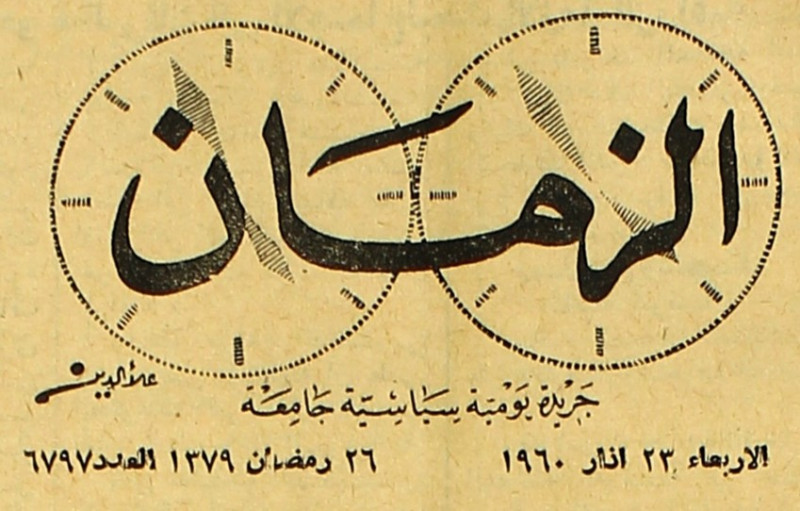 الزمان
علاء الدين
جريدة يومية سياسية جامعة
الاربعاء ٢٣ اذار ١٩٦٠ ٢٦ رمضان ١٣٧٩ العدد ٦٧٩٧